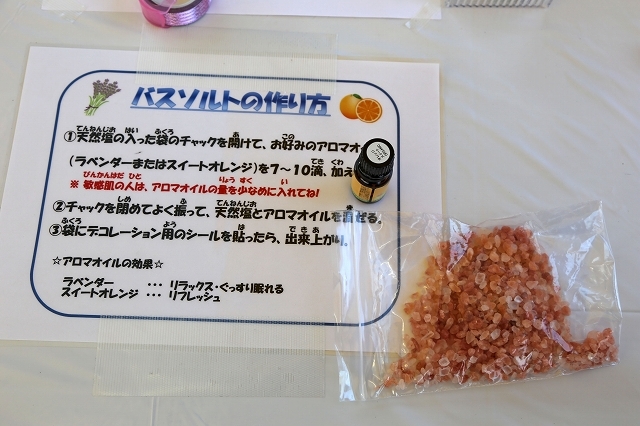 バスソルトの作り方
①天然塩の入った袋のチャックを開けて、お好みのアロマオ
(ラベンダーまたはスイートオレンジ)を7～10滴、加え
※ 敏感肌の人は、アロマオイルの量を少なめに入れてね!
②チャックを閉めてよく振って、天然塩とアロマオイルを混ぜる。
③袋にデコレーション用のシールを貼ったら、出来上がり。
☆アロマオイルの効果☆
ラベンダー ・・・ リラックス・ぐっすり眠れる
スイートオレンジ ・・・ リフレッシュ